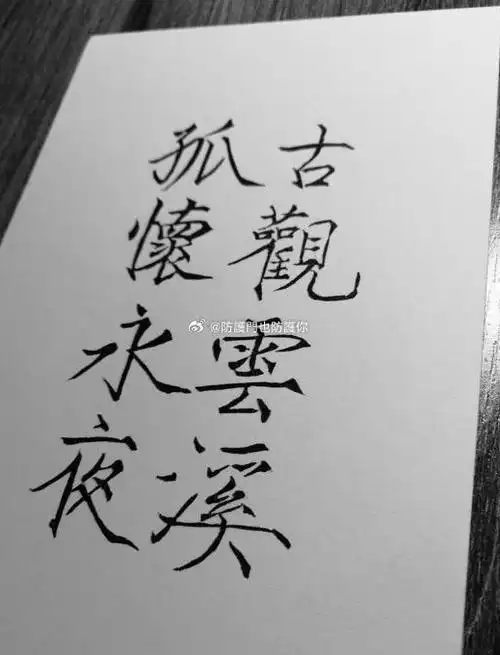 古觀雲溪
孤懷永夜
@防護門也防護你